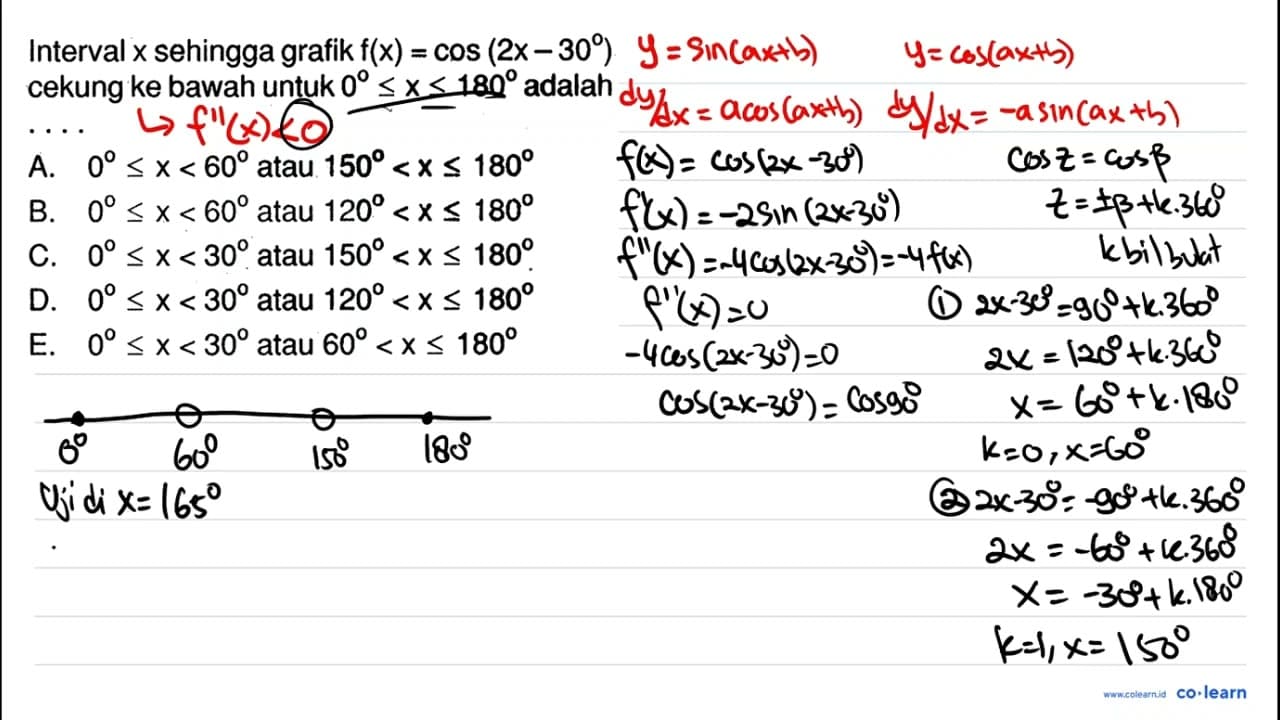 Interval x sehingga grafik f(x) = cos (2x – 30°)
cekung ke bawah untuk 0° ≤ x ≤ 180° adalah
. . . .
↳ f''(x) < 0
A. 0° ≤ x < 60° atau 150° < x ≤ 180°
B. 0° ≤ x < 60° atau 120° < x ≤ 180°
C. 0° ≤ x < 30° atau 150° < x ≤ 180°
D. 0° ≤ x < 30° atau 120° < x ≤ 180°
E. 0° ≤ x < 30° atau 60° < x ≤ 180°
0° 60° 150° 180°
Uji di x = 165°
y = sin(ax+b)
dy/dx = a cos(ax+b)
y = cos(ax+b)
dy/dx = -a sin(ax+b)
f(x) = cos(2x-30°)
f'(x) = -2 sin(2x-30°)
f''(x) = -4cos(2x-30°) = -4f(x)
f''(x) = 0
-4cos(2x-30°) = 0
cos(2x-30°) = cos90°
cos z = cos β
z = ±β + k.360°
k bil bulat
① 2x-30° = 90° + k.360°
2x = 120° + k.360°
x = 60° + k.180°
k=0, x=60°
② 2x-30° = -90° + k.360°
2x = -60° + k.360°
x = -30° + k.180°
k=1, x=150°
www.colearn.id co·learn